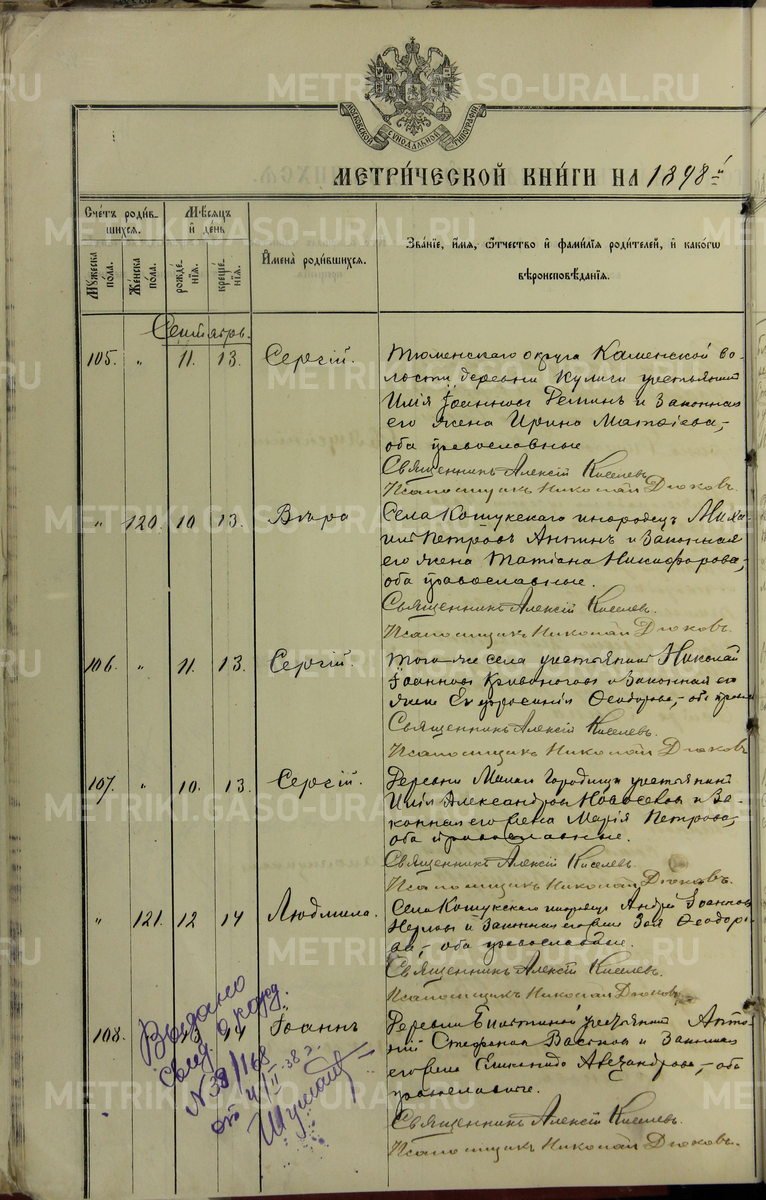 METRIKI.GASO-URAL.RU
МОСКОВСКОЙ СѴНОДАЛЬНОЙ ТИПОГРАФІИ
МЕТРИ́ЧЕСКОЙ КНИ́ГИ НА 1898 й
Сче́тъ роди́в-
шихсѧ.
Мѣ́сѧцъ
и҆ де́нь
Мꙋ́жеска по́ла.
Же́нска по́ла.
рожде́-
нїѧ.
креще́-
нїѧ.
И҆мена̀ роди́вшихсѧ.
Зва́нїе, и҆́мѧ, ѻ҆́тчество и҆ фами́лїѧ роди́телей, и҆ како́гѡ
вѣроисповѣ́данїѧ.
Сентябрь.
105. „ 11. 13. Сергій. Тюменскаго округа Каменской во-
лости, деревни Кулиги крестьянинъ
Илія Іоанновъ Реминъ и законная
его жена Ирина Матѳіева,-
оба православные
Священникъ Алексій Киселевъ.
Псаломщикъ Николай Дюковъ.
„ 120. 10. 13. Вѣра Села Кошукскаго инородецъ Миха-
илъ Петровъ Антинъ и законная
его жена Татіана Никифорова,
оба православные.
Священникъ Алексій Киселевъ.
Псаломщикъ Николай Дюковъ.
106. „ 11. 13. Сергій. Того-же села крестьянинъ Николай
Іоанновъ Кривоноговъ и законная его
жена Евфросинія Ѳеодорова,- оба правосл
Священникъ Алексій Киселевъ.
Псаломщикъ Николай Дюковъ
107. „ 10. 13. Сергій. Деревни Малой Городищи крестьянинъ
Илія Александровъ Новоселовъ и за-
конная его жена Марія Петрова,
оба православные.
Священникъ Алексій Киселевъ.
Псаломщикъ Николай Дюковъ.
„ 121. 12 14 Людмила. Села Кошукскаго инородецъ Андрей Іоанновъ
и законная его жена Зоя Ѳеодоро-
ва,- оба православные.
Священникъ Алексій Киселевъ.
Псаломщикъ Николай Дюковъ.
108. 14 Іоаннъ Деревни крестьянинъ Анто-
ній Стефановъ и законная
его жена Александрова,- оба
православные.
Священникъ Алексій Киселевъ.
Псаломщикъ Николай Дюковъ.
Выдано
свид. о рожд.
№ 39/168
от 4/II-38 г.